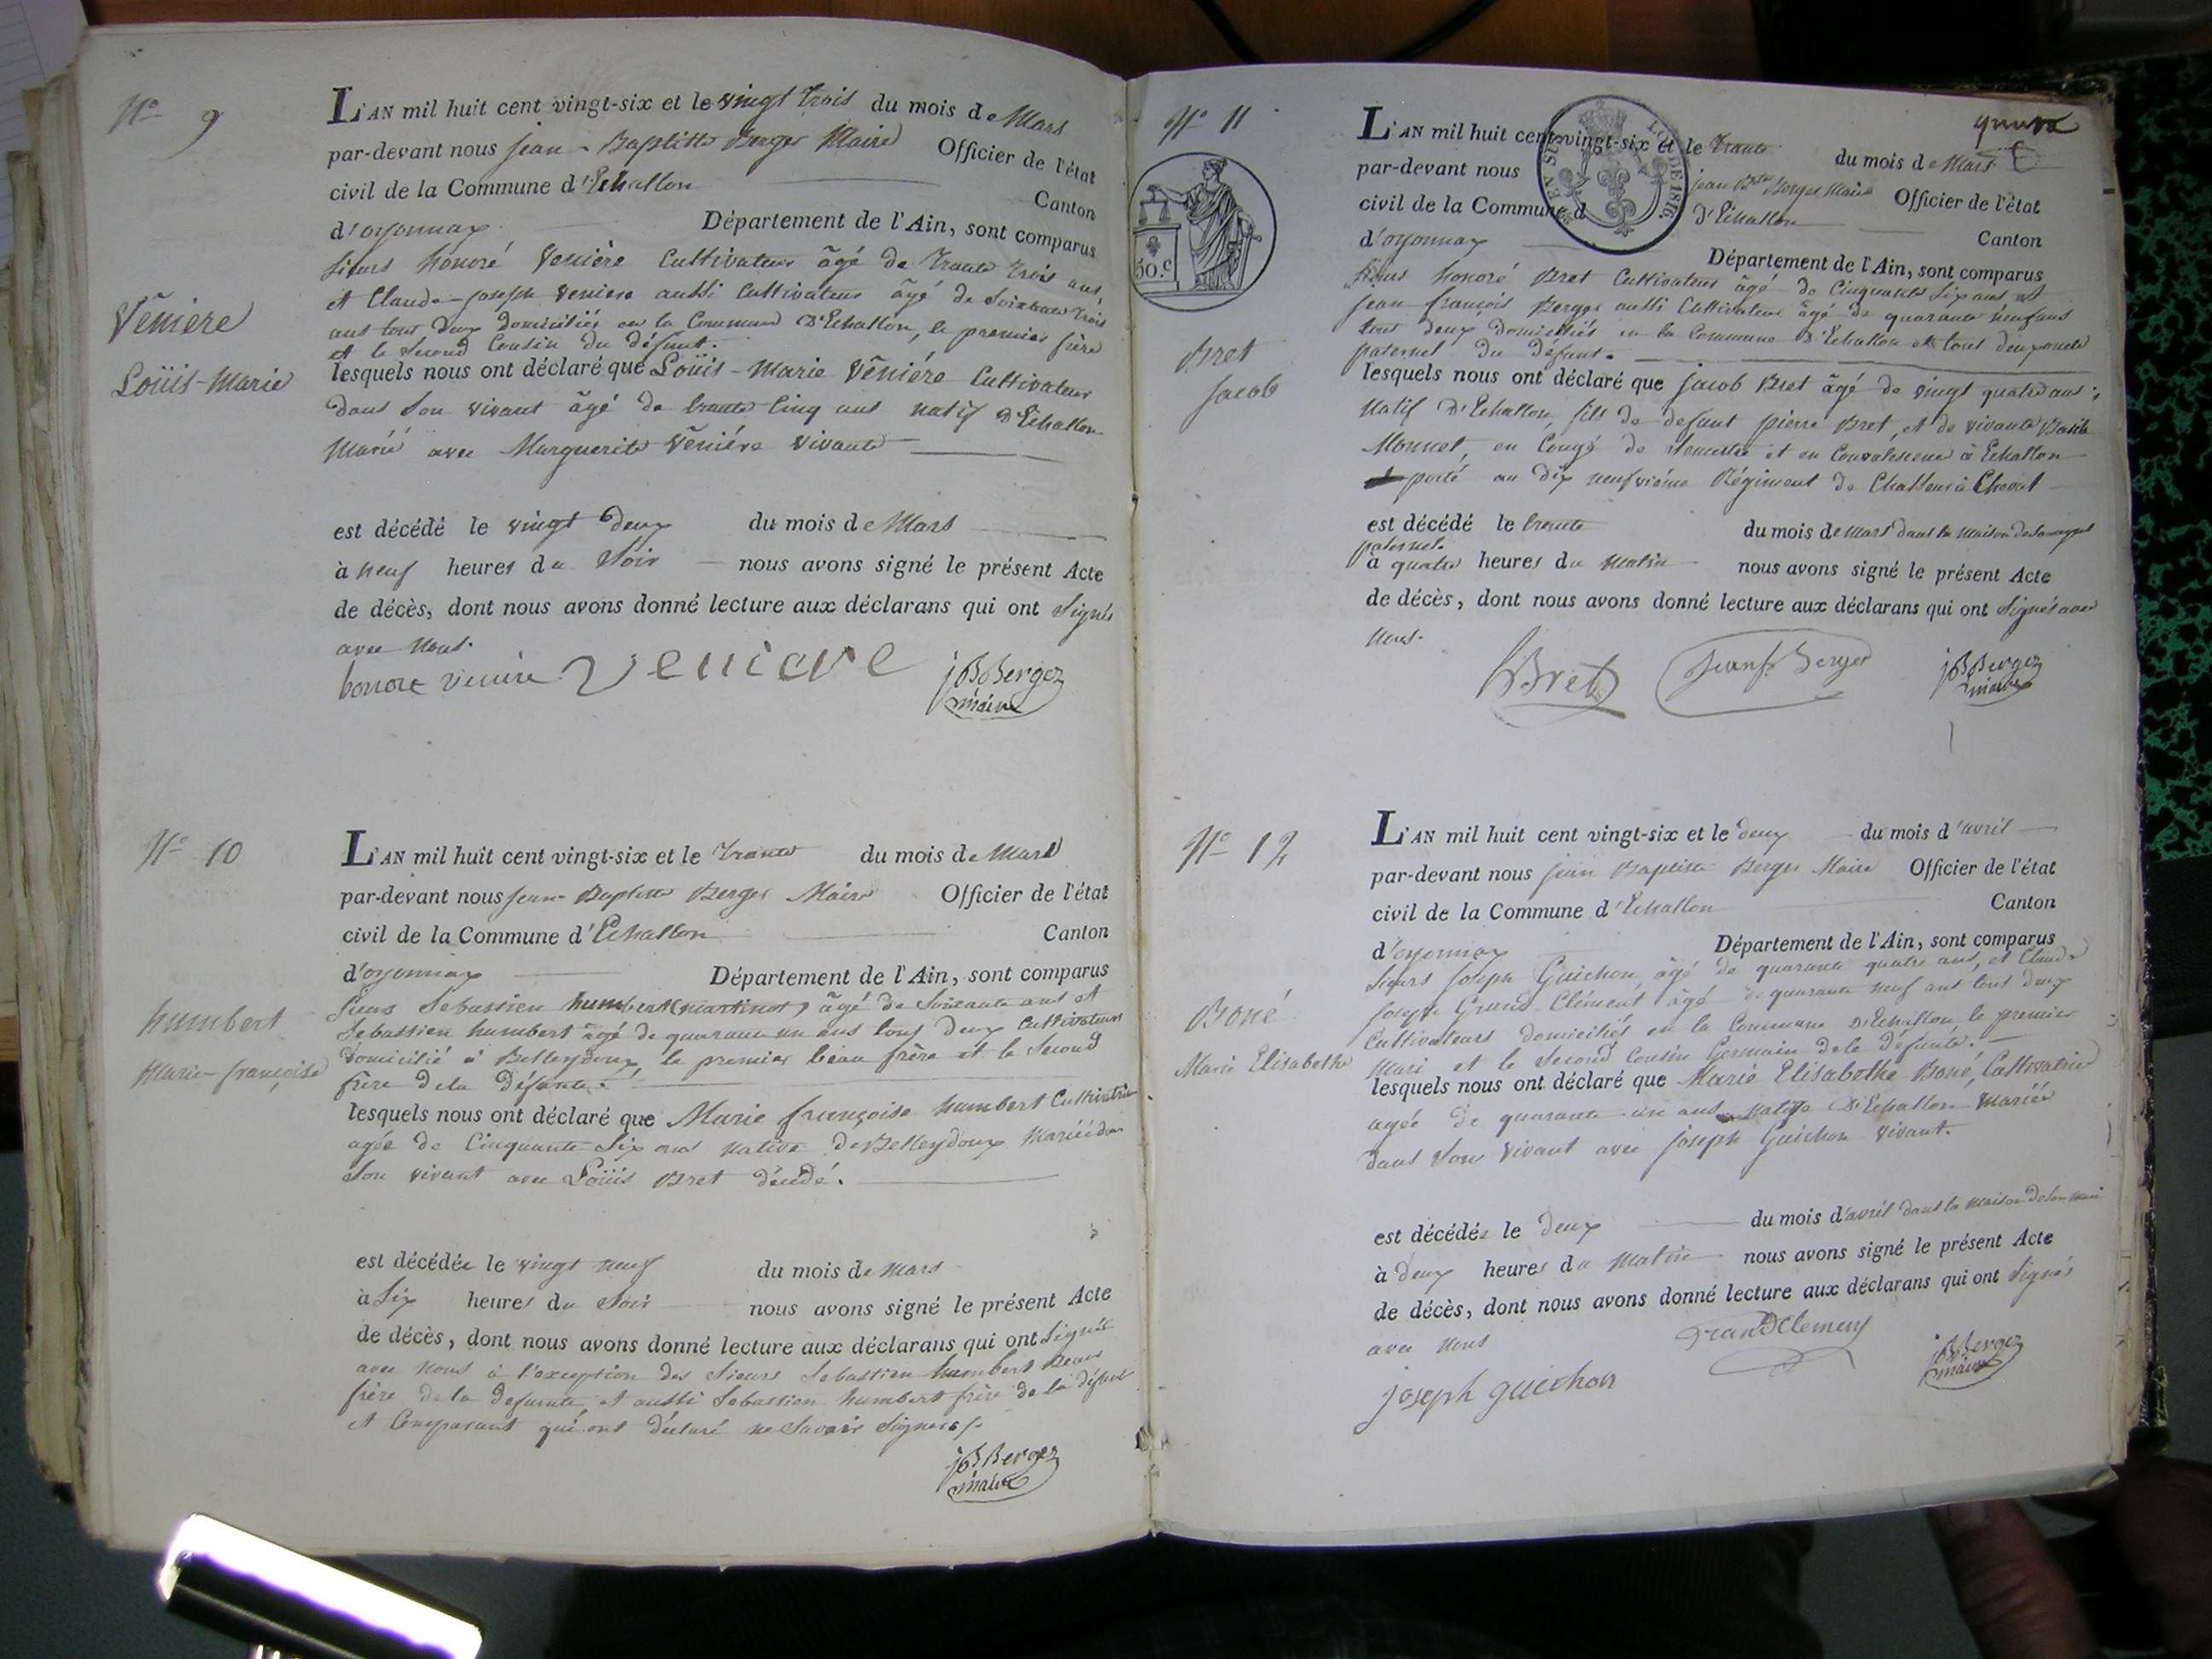 N° 9
L'AN mil huit cent vingt-six et le vingt trois du mois de Mars
par-devant nous jean-Baptiste Berger Maire Officier de l'état
civil de la Commune d'Echallon Canton
d'oyonnax Département de l'Ain, sont comparus
sieurs honoré Venière Cultivateur âgé de trente trois ans,
et Claude-joseph Veniere aussi Cultivateur âgé de soixante trois
ans tous deux domiciliés en la Commune d'Echallon, le premier frère
et le second Cousin du défunt.
Vēnière
Loüis-Marie
lesquels nous ont déclaré que Loüis-Marie Vēniére Cultivateur
dans son vivant âgé de trente cinq ans natif d'Echallon
Marié avec Marguerite Vēniére vivante
est décédé le vingt deux du mois de Mars
à neuf heures du soir nous avons signé le présent Acte
de décès, dont nous avons donné lecture aux déclarans qui ont signés
avec nous.
honore veniere veniere jBBerger
maire
N° 10
L'AN mil huit cent vingt-six et le trente du mois de Mars
par-devant nous jean-Baptiste Berger Maire Officier de l'état
civil de la Commune d'Echallon Canton
d'oyonnax Département de l'Ain, sont comparus
sieurs Sebastien humbert (martinot) âgé de soixante ans et
Sebastien humbert âgé de quarante un ans tous deux Cultivateurs
domicilié à Belleydoux, le premier beau frère et le second
frère de la défunte.
humbert
Marie-françoise
lesquels nous ont déclaré que Marie françoise humbert Cultivatrice
agée de Cinquante six ans native de Belleydoux Mariée dans
son vivant avec Loüis Bret décédé.
est décédée le vingt neuf du mois de Mars
à six heures du soir nous avons signé le présent Acte
de décès, dont nous avons donné lecture aux déclarans qui ont signés
avec nous à l'exception des sieurs Sebastien humbert beau
frère de la defunte et aussi Sebastien humbert frère de la défunte
et Comparant qui ont déclaré ne savoir signer
jBBerger
maire
N° 11
50.c
LOI DE 1816.
L'AN mil huit cent vingt-six et le trente du mois de Mars
par-devant nous jean Bte Berger Maire Officier de l'état
civil de la Commune d d'Echallon Canton
d'oyonnax Département de l'Ain, sont comparus
sieurs honoré Bret Cultivateur âgé de Cinquante six ans et
jean françois Berger aussi Cultivateur âgé de quarante neuf ans
tout deux domiciliés en la Commune d'Echallon et tout deux oncle
paternel du défunt.
Bret
Jacob
lesquels nous ont déclaré que jacob Bret âgé de vingt quatre ans
Natif d'Echallon, fils de defunt pierre Bret, et de vivante
Monnet, en Congé de Semestre et en Convalescence à Echallon
porté au dix neufvième Régiment de Chasseur à Cheval
est décédé le trente du mois de Mars dans la Maison de son
paternel.
à quatre heures du matin nous avons signé le présent Acte
de décès, dont nous avons donné lecture aux déclarans qui ont signés avec
nous.
hBret Jean f Berger jBBerger
maire
N° 12
L'AN mil huit cent vingt-six et le deux du mois d'avril
par-devant nous jean Baptiste Berger Maire Officier de l'état
civil de la Commune d'Echallon Canton
d'oyonnax Département de l'Ain, sont comparus
sieurs joseph Guichon, âgé de quarante quatre ans, et Claude
joseph Grand-Clément âgé de quarante neuf ans tout deux
Cultivateurs domiciliés en la Commune d'Echallon le premier
Mari et le second Cousin Germain de la défunte.
Boné
Marie Elisabethe
lesquels nous ont déclaré que Marie Elisabethe Boné, Cultivatrice
agée de quarante un ans native d'Echallon Mariée
dans son vivant avec joseph Guichon vivant.
est décédée le deux du mois d'avril dans la Maison de son mari
à deux heures du matin nous avons signé le présent Acte
de décès, dont nous avons donné lecture aux déclarans qui ont signés
avec nous
joseph guichon GranDClement jBBerger
maire